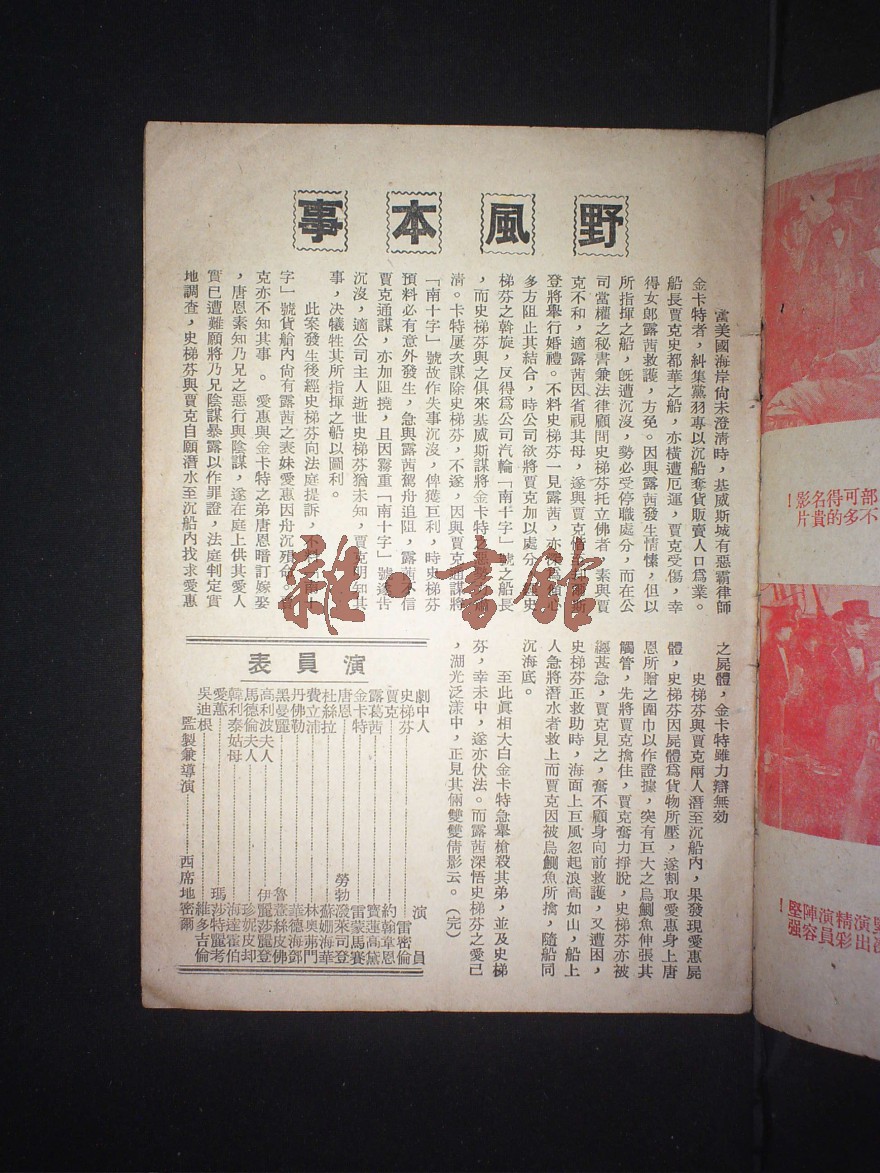 野風本事
當美國海岸尙未澄清時，基威斯城有惡霸律師
金卡特者，糾集黨羽專以沉船奪貨販賣人口爲業。
船長賈克史都華之船，亦橫遭厄運，賈克受傷，幸
得女郎露茜救護，方免。因與露茜發生情愫，但以
所指揮之船，旣遭沉沒，勢必受停職處分，而在公
司當權之秘書兼法律顧問史梯芬托立佛者，素與賈
克不和，適露茜因省視其母，遂與賈克偕
登將舉行婚禮。不料史梯芬一見露茜，亦
多方阻止其結合，時公司欲將賈克加以處分
梯芬之斡旋，反得爲公司汽輪「南十字」號之船長
，而史梯芬與之俱來基威斯謀將金卡特之惡
清。卡特屢次謀除史梯芬，不遂，因與賈克通謀將
「南十字」號故作失事沉沒，俾獲巨利，時史梯芬
預料必有意外發生，急與露茜駕舟追阻，露茜不信
賈克通謀，亦加阻撓，且因霧重「南十字」號遂告
沉沒，適公司主人逝世史梯芬猶未知，賈克明知其
事，決犧牲其所指揮之船以圖利。
此案發生後經史梯芬向法庭提訴，不料「南十
字」號貨艙內尙有露茜之表妹愛惠因舟沉殞命。賈
克亦不知其事。愛惠與金卡特之弟唐恩暗訂嫁娶
，唐恩素知乃兄之惡行與陰謀，遂在庭上供其愛人
實已遭難願將乃兄陰謀暴露以作罪證，法庭判定實
地調查，史梯芬與賈克自願潛水至沉船內找求愛惠
之屍體，金卡特雖力辯無効
史梯芬與賈克兩人潛至沉船內，果發現愛惠屍
體，史梯芬因屍體爲貨物所壓，遂割取愛惠身上唐
恩所贈之圍巾以作證據，突有巨大之烏鰂魚伸張其
觸管，先將賈克擒住，賈克奮力掙脫，史梯芬亦被
纏甚急，賈克見之，奮不顧身向前救護，又遭困，
史梯芬正救助時，海面上巨風忽起浪高如山，船上
人急將潛水者救上而賈克因被烏鰂魚所擒，隨船同
沉海底。
至此眞相大白金卡特急舉槍殺其弟，並及史梯
芬，幸未中，遂亦伏法。而露茜深悟史梯芬之愛己
，湖光泛漾中，正見其倆雙雙倩影云。（完）
演員表
劇中人 演員
史梯芬 雷密倫
賈克 約翰韋恩
露葛茜 寶蓮高黛
金卡特 雷蒙馬賽
唐恩 勞勃潑萊司登
杜絲拉 蘇姍海華
費立浦 林奥蒂門
丹佛勒 華德海鄧
黑曼麗 魯薏絲皮佛
高利波夫人 伊麗莎麗登
馬德倫夫人 珍妮皮却
韓利泰姑母 海達霍伯
愛蕙 瑪莎特麗考
吳迪根 維多吉倫
監製兼導演 西席地密爾
雜·書館